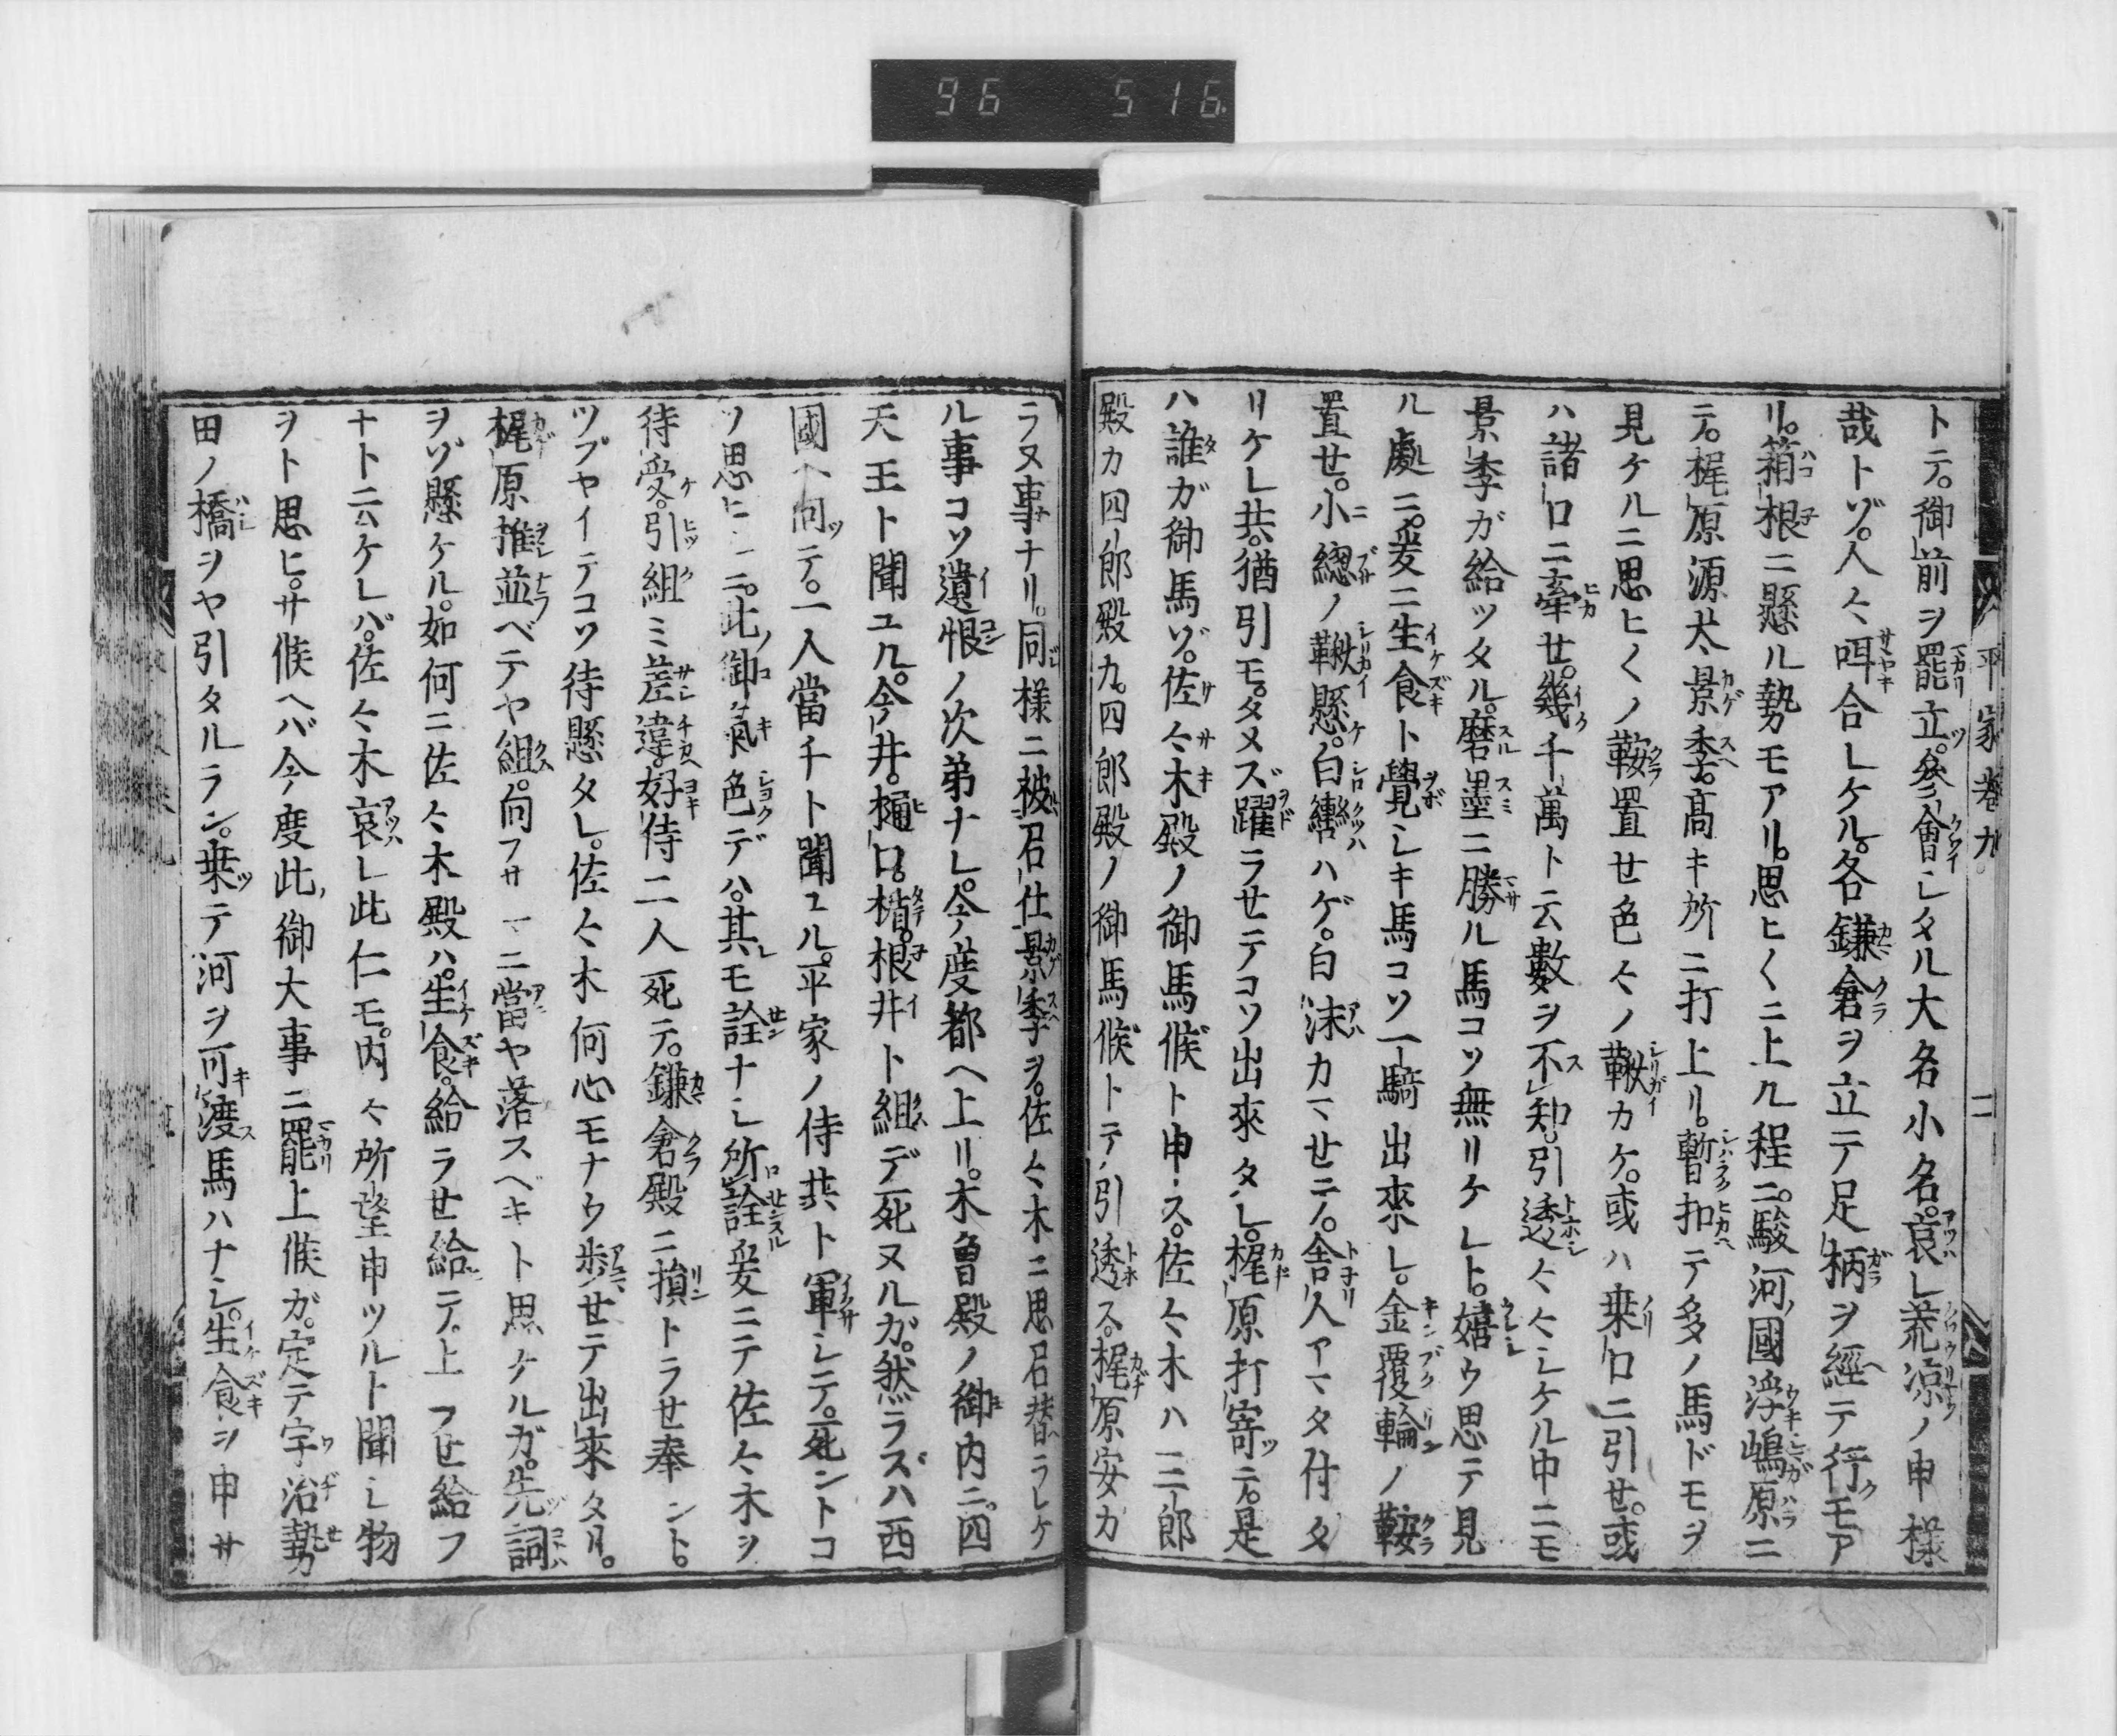 96 516
平家巻九 二
トテ。御前ヲ罷立。参會シタル大名小名。哀レ荒凉ノ申様
哉トゾ。人々咡合レケル。各鎌倉ヲ立テ足柄ヲ經テ行モア
リ。箱根ニ懸ル勢モアリ。思ヒ〱ニ上ル程ニ。駿河國浮嶋原ニ
テ。梶原源太景季。高キ所ニ打上リ。暫扣テ多ノ馬ドモヲ
見ケルニ思ヒ〱ノ鞍置せ色々ノ鞦カケ。或ハ乗口ニ引せ。或
ハ諸口ニ牽せ。幾千萬ト云數ヲ不知。引透々々シケル中ニモ
景季ガ給ツタル。磨墨ニ勝ル馬コソ無リケレト。嬉ウ思テ見
ル處ニ。爰ニ生食ト覺シキ馬コソ一騎出來レ。金覆輪ノ鞍
置せ。小總ノ鞦懸。白轡ハゲ。白沫カマせニ。舎人アマタ付タ
リケレ共。猶引モタメズ躍ラせテコソ出來タレ。梶原打寄テ。是
ハ誰ガ御馬ゾ。佐々木殿ノ御馬候ト申ス。佐々木ハ三郎
殿カ四郎殿カ。四郎殿ノ御馬候トテ引透ス。梶原安カ
ラヌ事ナリ。同様ニ被召仕景季ヲ。佐々木ニ思召替ラレケ
ル事コソ遺恨ノ次第ナレ。今度都ヘ上リ。木曽殿ノ御内ニ。四
天王ト聞ユル。今井。樋口。楯。根井ト組デ死ヌルカ。然ラズハ西
國ヘ向テ。一人當千ト聞ユル。平家ノ侍共ト軍シテ。死ントコ
ソ思ヒシニ。此御氣色デハ。其モ詮ナシ所詮爰ニテ佐々木ヲ
待受。引組ミ差違。好侍二人死テ。鎌倉殿ニ損トラせ奉ント。
ツブヤイテコソ待懸タレ。佐々木何心モナウ歩せテ出來タリ。
梶原推並ベテヤ組。向フサマニ當ヤ落スベキト思ケルガ。先詞
ヲゾ懸ケル。如何ニ佐々木殿ハ。生食給ラせ給テ。上ラせ給フ
ナト云ケレバ。佐々木哀レ此仁モ。内々所望申ツルト聞シ物
ヲト思ヒ。サ候ヘバ今度此御大事ニ罷上候ガ。定テ宇治勢
田ノ橋ヲヤ引タルラン。乗テ河ヲ可渡馬ハナシ。生食ヲ申サ